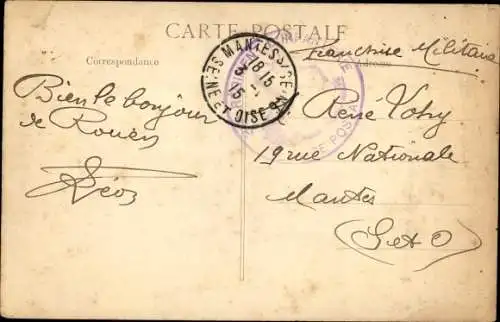 CARTE POSTALE
Franchise Militaire
Correspondance
Adresse
MANTES S/SEINE
18 15
15
SEINE ET OISE
SERVICE POSTAL
Bien le bonjour
de Rouen
Léon
René Votry
19 rue Nationale
Mantes
(S et O)